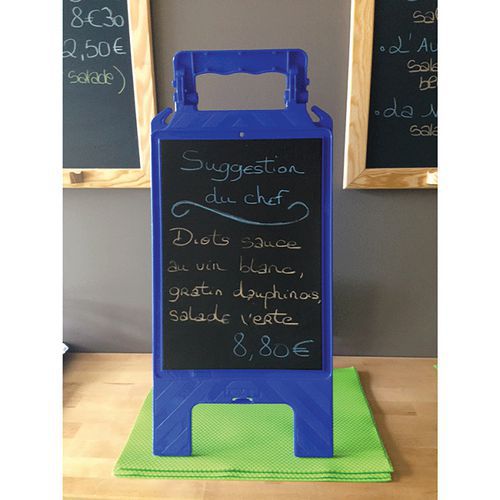 8€30
2,50€
salade)
Suggestion
du chef
Diots sauce
au vin blanc,
gratin dauphinois,
salade verte
8,80€
• L'Au
sala
be
• La
sala